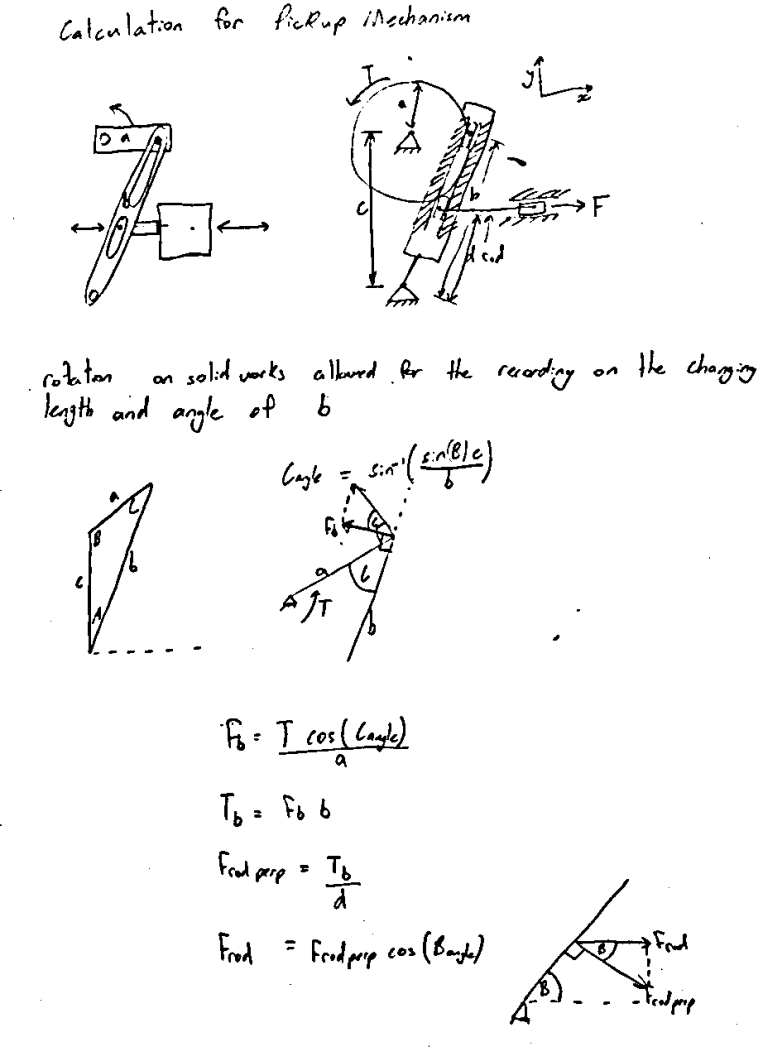 Calculation for Pickup Mechanism
T
a
y
x
a
c
b
F
d
rod
rotation on solid works allowed for the recording on the changing
length and angle of b
C angle = sin⁻¹( sin(B) c / b )
a
C
B
c
b
A
F_b
c
a
C
T
b
F_b = T cos(C angle) / a
T_b = F_b b
F rod perp = T_b / d
F rod = F rod perp cos(B angle)
B
F rod
B
F rod perp